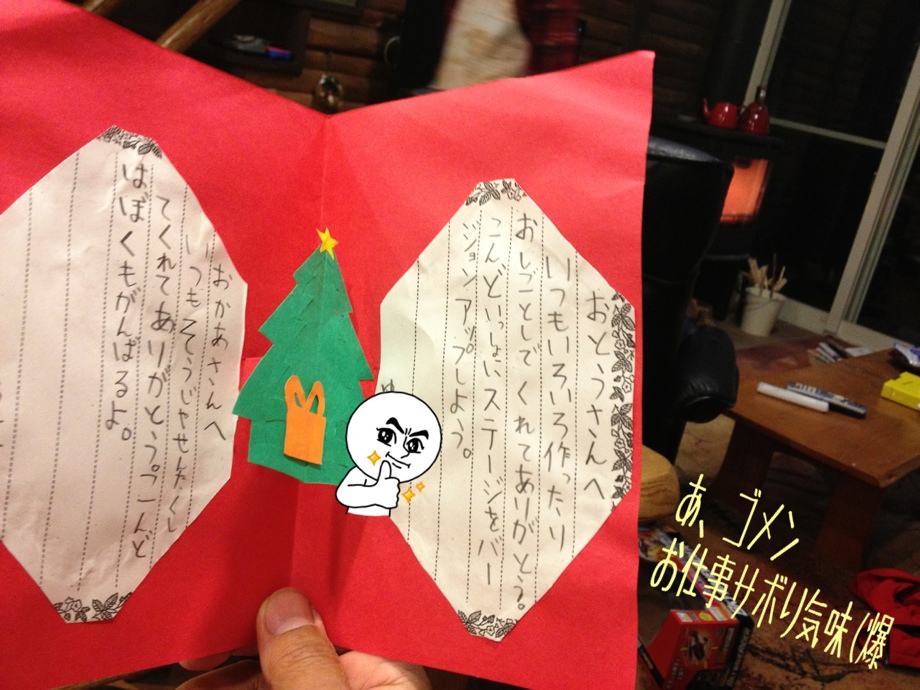 おとうさんへ
いつもいろいろ作ったり
おしごとしてくれてありがとう。
こんどいっしょにステージをバー
ジョンアップしよう。
おかあさんへ
いつもそうじやせんたくし
てくれてありがとう。こんど
はぼくもがんばるよ。
あ、ゴメン
お仕事サボり気味(爆